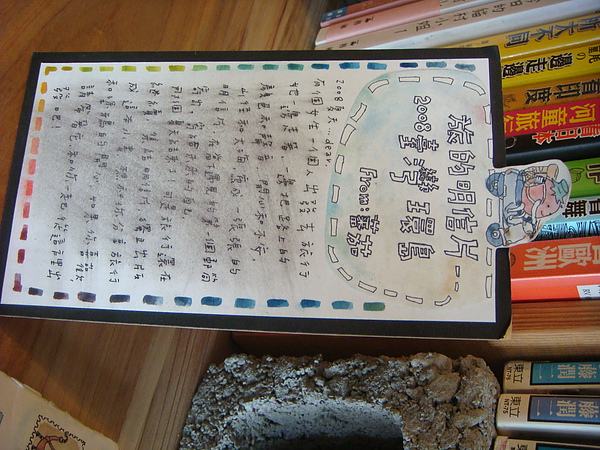 大不同
邊走邊
看印度
河童旅行
看日本
藤潤二
東立
NT-75
藤潤二
東立
NT-76
旅的明信片--
2008臺灣環島
From:蕃茄
2008夏天...dear,
有個女生一個人出發去旅行
她一邊走著,一邊把路上的
顏色和聲音,開心和不安,
山徑和大海,寫成一張張的
明信片,在當下遇見的第一個郵筒
寄出,寄給未來的自己。
那個夏天結束了,可是旅行還在
繼續,集結明信片,獨立出版
成這本小書,想和你分享旅行
和塗鴉的開心,如果你喜歡,
請帶著它,和你一起從這裡出
發吧!